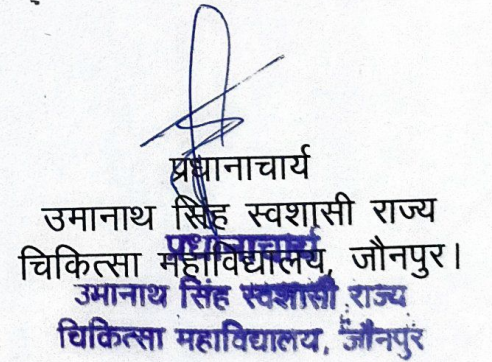 प्रधानाचार्य
उमानाथ सिंह स्वशासी राज्य
प्रधानाचार्य
चिकित्सा महाविद्यालय, जौनपुर।
उमानाथ सिंह स्वशासी राज्य
चिकित्सा महाविद्यालय, जौनपुर